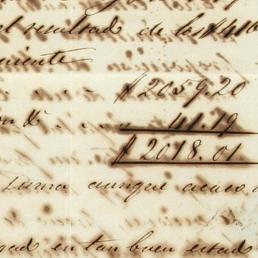 el resultado de los $410
$2059.20
41.19
$2018.01
suma aunque acaso
en tan buen estado